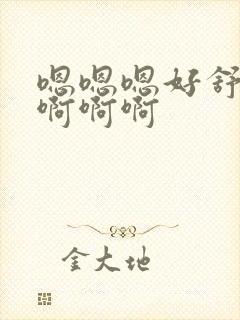 嗯嗯嗯好舒
啊啊啊
金大地